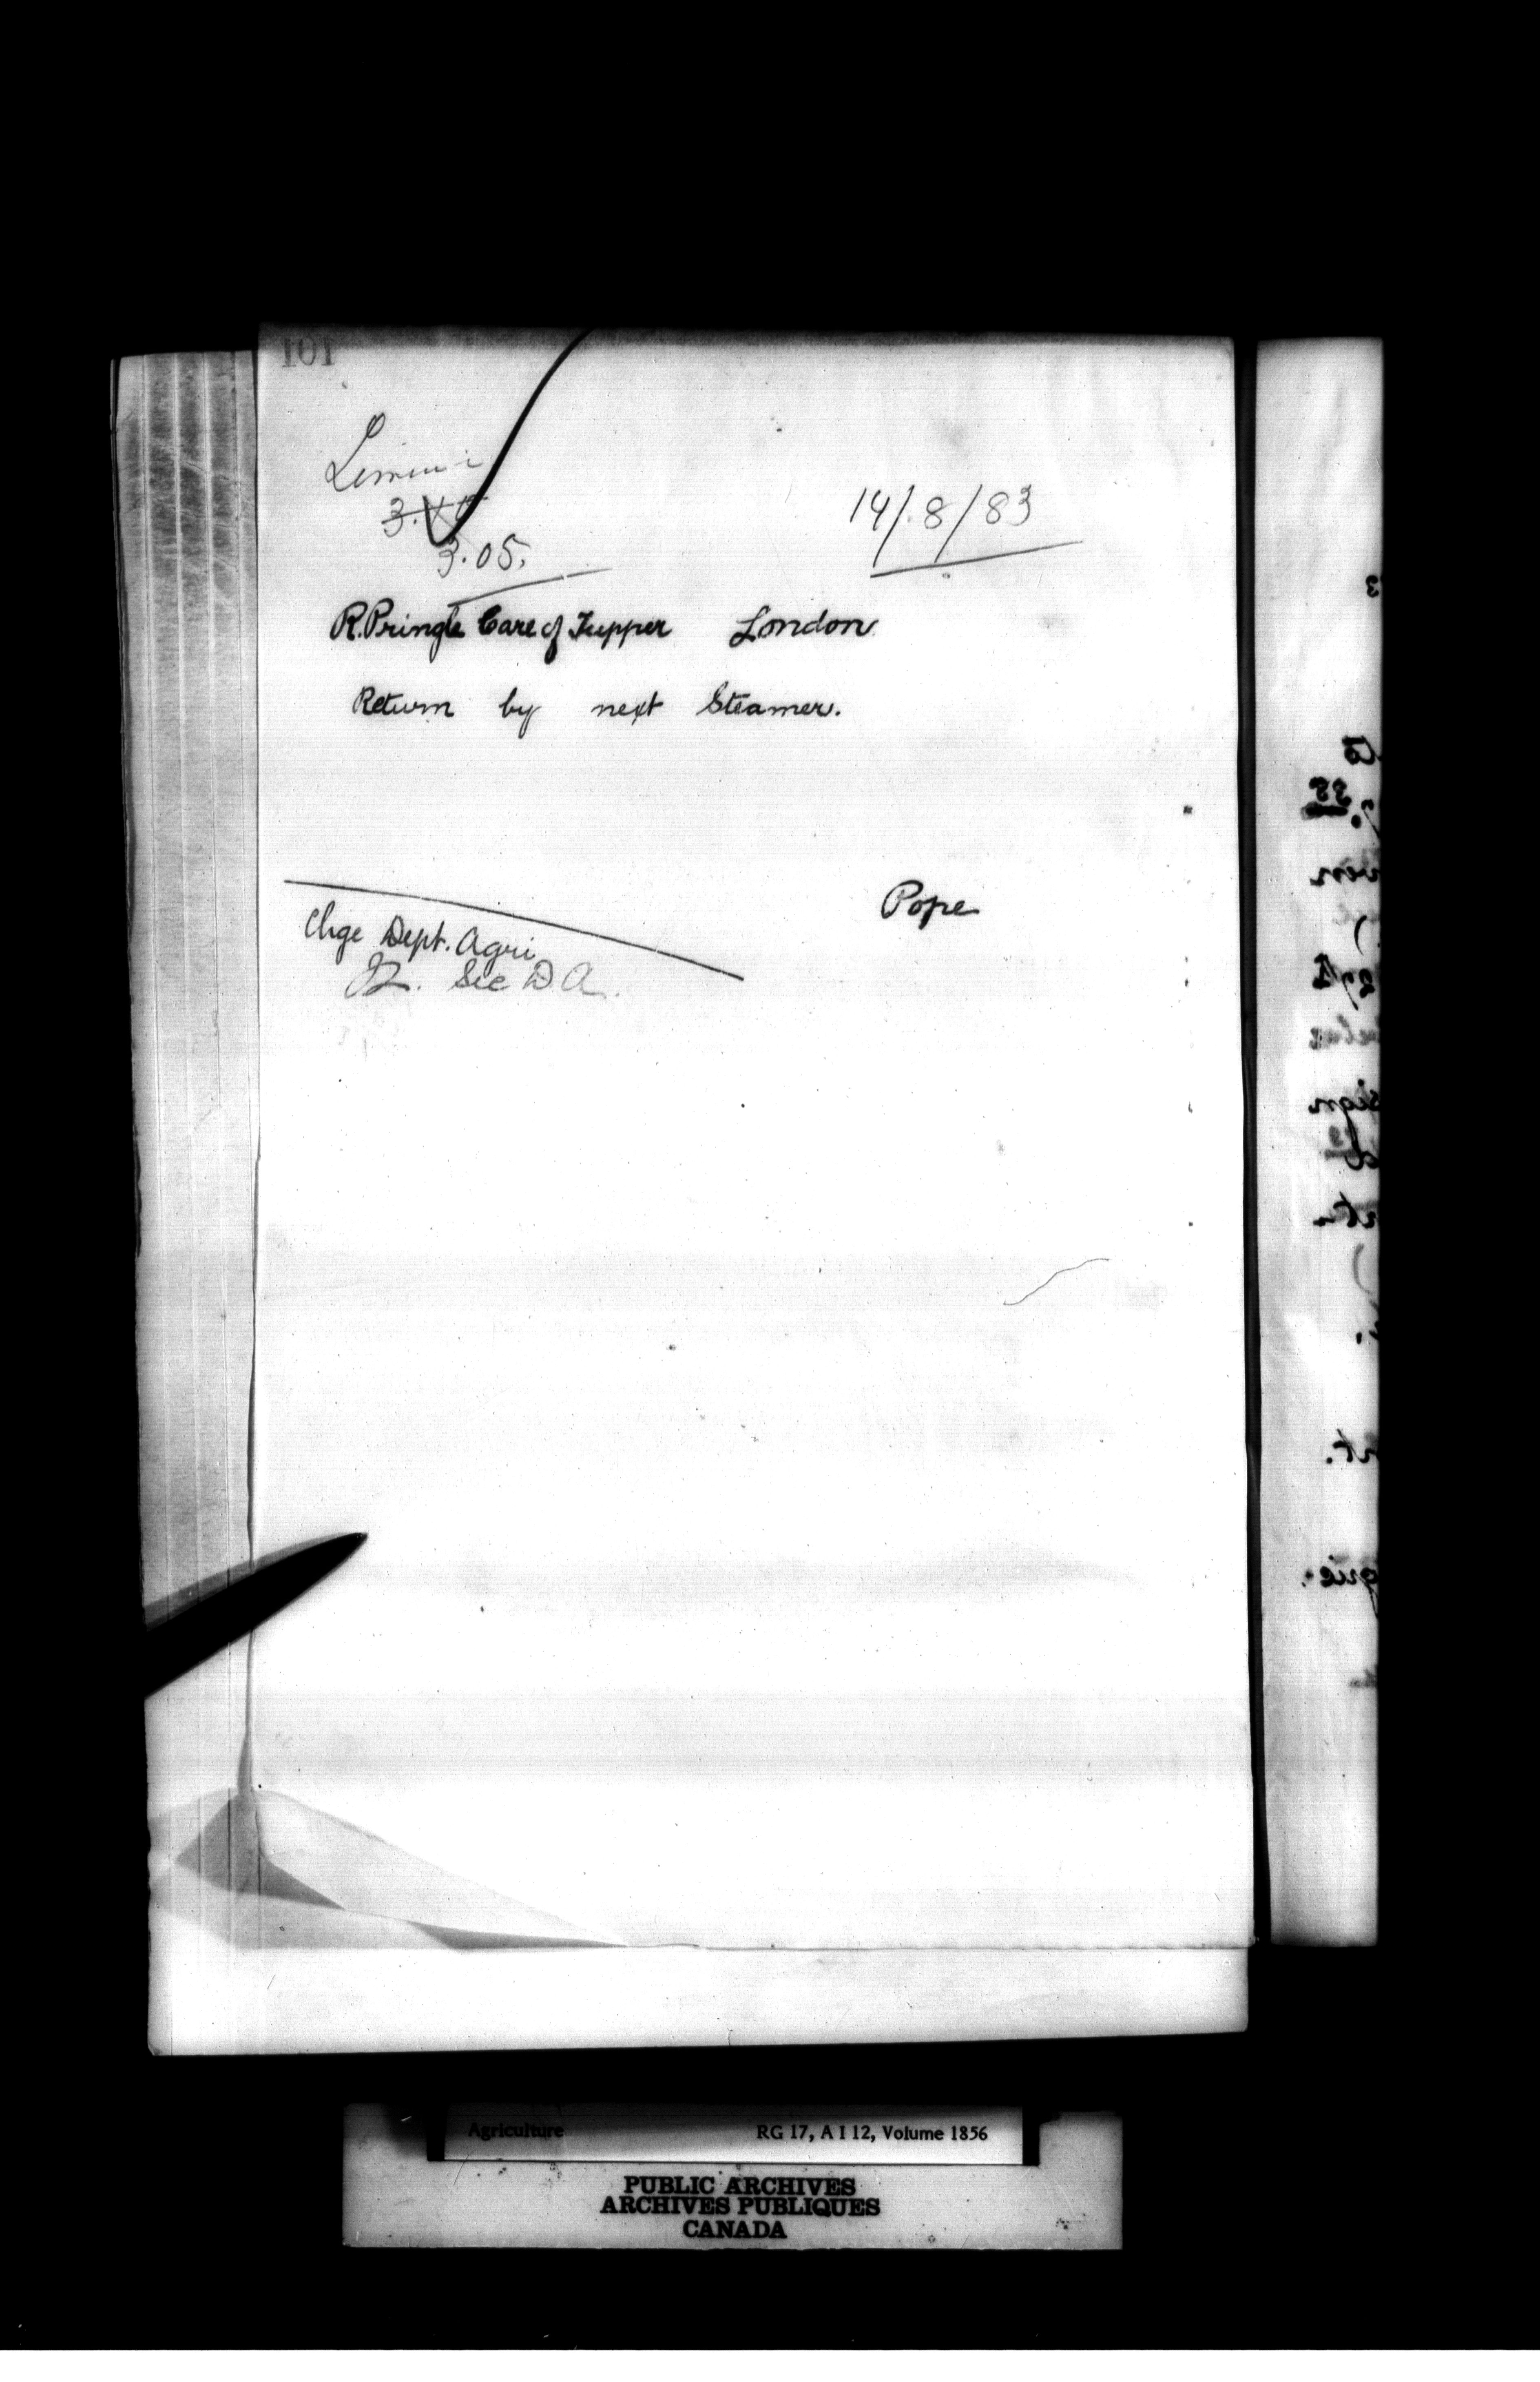 101
14/8/83
3.05.
R. Pringle Care of Tupper London
Return by next Steamer.
Pope
Chge Dept. Agri
Sec D A.
Agriculture RG 17, A I 12, Volume 1856
PUBLIC ARCHIVES
ARCHIVES PUBLIQUES
CANADA